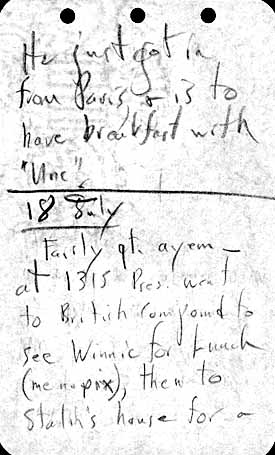 He just got in
from Paris, & is to
have breakfast with
"Unc".
18 July
Fairly qt. ayem —
at 1315 Pres. went
to British compound to
see Winnie for lunch
(me no pix), then to
Stalin's house for a